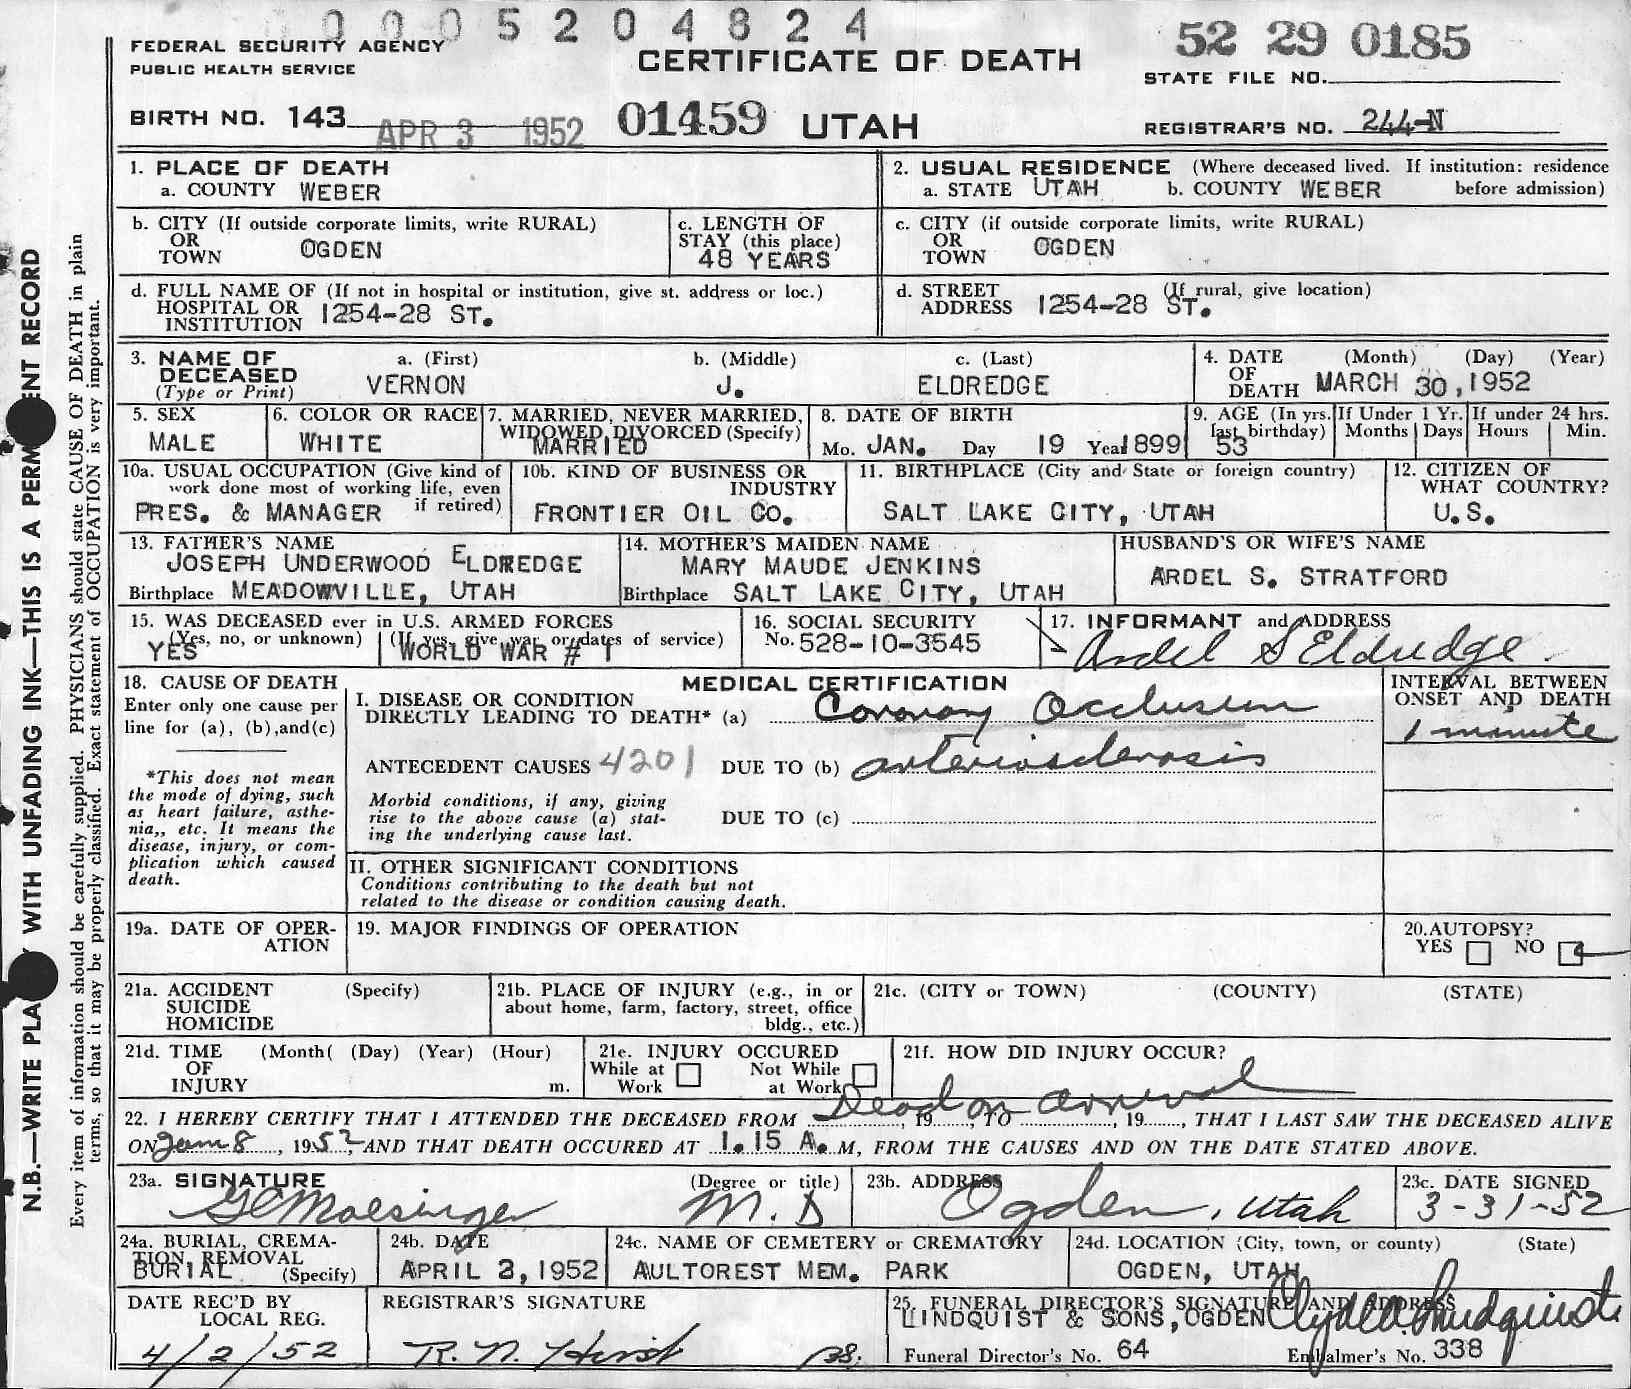 0005204824
FEDERAL SECURITY AGENCY
PUBLIC HEALTH SERVICE
CERTIFICATE OF DEATH
52 29 0185
STATE FILE NO.
BIRTH NO. 143
APR 3 1952
01459 UTAH
REGISTRAR'S NO. 244-N
N.B.—WRITE PLA WITH UNFADING INK—THIS IS A PERM ENT RECORD
Every item of information should be carefully supplied. PHYSICIANS should state CAUSE OF DEATH in plain
terms, so that it may be properly classified. Exact statement of OCCUPATION is very important.
1. PLACE OF DEATH
a. COUNTY WEBER
2. USUAL RESIDENCE (Where deceased lived. If institution: residence
a. STATE UTAH b. COUNTY WEBER before admission)
b. CITY (If outside corporate limits, write RURAL)
OR
TOWN OGDEN
c. LENGTH OF
STAY (this place)
48 YEARS
c. CITY (if outside corporate limits, write RURAL)
OR
TOWN OGDEN
d. FULL NAME OF (If not in hospital or institution, give st. address or loc.)
HOSPITAL OR
INSTITUTION 1254-28 ST.
d. STREET (If rural, give location)
ADDRESS 1254-28 ST.
3. NAME OF
DECEASED
(Type or Print)
a. (First) b. (Middle) c. (Last)
VERNON J. ELDREDGE
4. DATE (Month) (Day) (Year)
OF
DEATH MARCH 30, 1952
5. SEX
MALE
6. COLOR OR RACE
WHITE
7. MARRIED, NEVER MARRIED,
WIDOWED, DIVORCED (Specify)
MARRIED
8. DATE OF BIRTH
Mo. JAN. Day 19 Year 1899
9. AGE (In yrs.
last birthday)
53
If Under 1 Yr.
Months Days
If under 24 hrs.
Hours Min.
10a. USUAL OCCUPATION (Give kind of
work done most of working life, even
if retired)
PRES. & MANAGER
10b. KIND OF BUSINESS OR
INDUSTRY
FRONTIER OIL CO.
11. BIRTHPLACE (City and State or foreign country)
SALT LAKE CITY, UTAH
12. CITIZEN OF
WHAT COUNTRY?
U.S.
13. FATHER'S NAME
JOSEPH UNDERWOOD ELDREDGE
Birthplace MEADOWVILLE, UTAH
14. MOTHER'S MAIDEN NAME
MARY MAUDE JENKINS
Birthplace SALT LAKE CITY, UTAH
HUSBAND'S OR WIFE'S NAME
ARDEL S. STRATFORD
15. WAS DECEASED ever in U.S. ARMED FORCES
(Yes, no, or unknown) (If yes, give war or dates of service)
YES WORLD WAR # 1
16. SOCIAL SECURITY
No. 528-10-3545
17. INFORMANT and ADDRESS
Ardel S Eldredge.
18. CAUSE OF DEATH
Enter only one cause per
line for (a), (b), and (c)
*This does not mean
the mode of dying, such
as heart failure, asthe-
nia,, etc. It means the
disease, injury, or com-
plication which caused
death.
MEDICAL CERTIFICATION
I. DISEASE OR CONDITION
DIRECTLY LEADING TO DEATH* (a) Coronary Occlusion
ANTECEDENT CAUSES 4201 DUE TO (b) arteriosclerosis
Morbid conditions, if any, giving
rise to the above cause (a) stat-
ing the underlying cause last.
DUE TO (c)
INTERVAL BETWEEN
ONSET AND DEATH
1 minute
II. OTHER SIGNIFICANT CONDITIONS
Conditions contributing to the death but not
related to the disease or condition causing death.
19a. DATE OF OPER-
ATION
19. MAJOR FINDINGS OF OPERATION
20. AUTOPSY?
YES NO
21a. ACCIDENT (Specify)
SUICIDE
HOMICIDE
21b. PLACE OF INJURY (e.g., in or
about home, farm, factory, street, office
bldg., etc.)
21c. (CITY or TOWN) (COUNTY) (STATE)
21d. TIME (Month( (Day) (Year) (Hour)
OF
INJURY m.
21e. INJURY OCCURED
While at Not While
Work at Work
21f. HOW DID INJURY OCCUR?
Dead on arrival
22. I HEREBY CERTIFY THAT I ATTENDED THE DECEASED FROM , 19 , TO , 19 , THAT I LAST SAW THE DECEASED ALIVE
ON Jan 8, 1952, AND THAT DEATH OCCURED AT 1.15 A.M, FROM THE CAUSES AND ON THE DATE STATED ABOVE.
23a. SIGNATURE (Degree or title)
Moesinger M.D
23b. ADDRESS
Ogden, Utah
23c. DATE SIGNED
3-31-52
24a. BURIAL, CREMA-
TION, REMOVAL
(Specify)
BURIAL
24b. DATE
APRIL 2, 1952
24c. NAME OF CEMETERY or CREMATORY
AULTOREST MEM. PARK
24d. LOCATION (City, town, or county) (State)
OGDEN, UTAH
DATE REC'D BY
LOCAL REG.
4/2/52
REGISTRAR'S SIGNATURE
R. N. Hirst
25. FUNERAL DIRECTOR'S SIGNATURE AND ADDRESS
LINDQUIST & SONS, OGDEN
Funeral Director's No. 64 Embalmer's No. 338